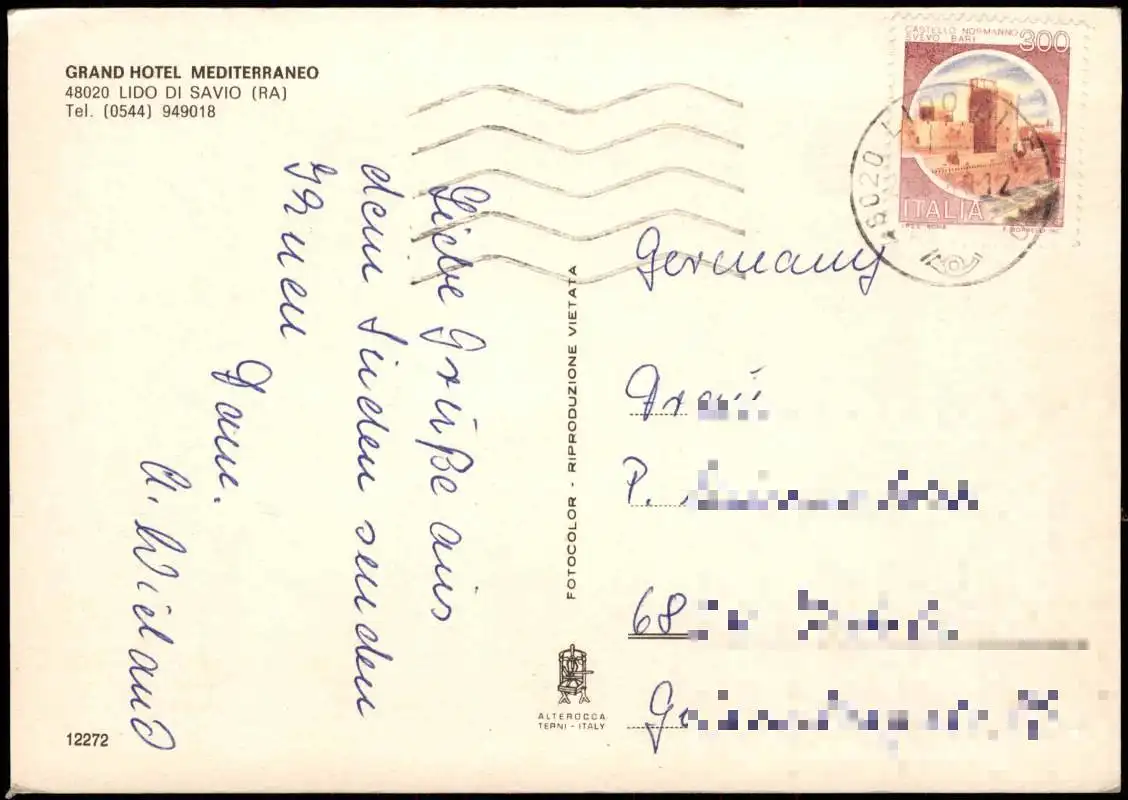 GRAND HOTEL MEDITERRANEO
48020 LIDO DI SAVIO (RA)
Tel. (0544) 949018
Liebe Grüße aus
dem Süden senden
Ihnen
Fam.
A. Wieland
12272
FOTOCOLOR - RIPRODUZIONE VIETATA
ALTEROCCA
TERNI - ITALY
CASTELLO NORMANNO
SVEVO BARI
300
ITALIA
48020 LIDO DI
Germany
Frau
P.
68